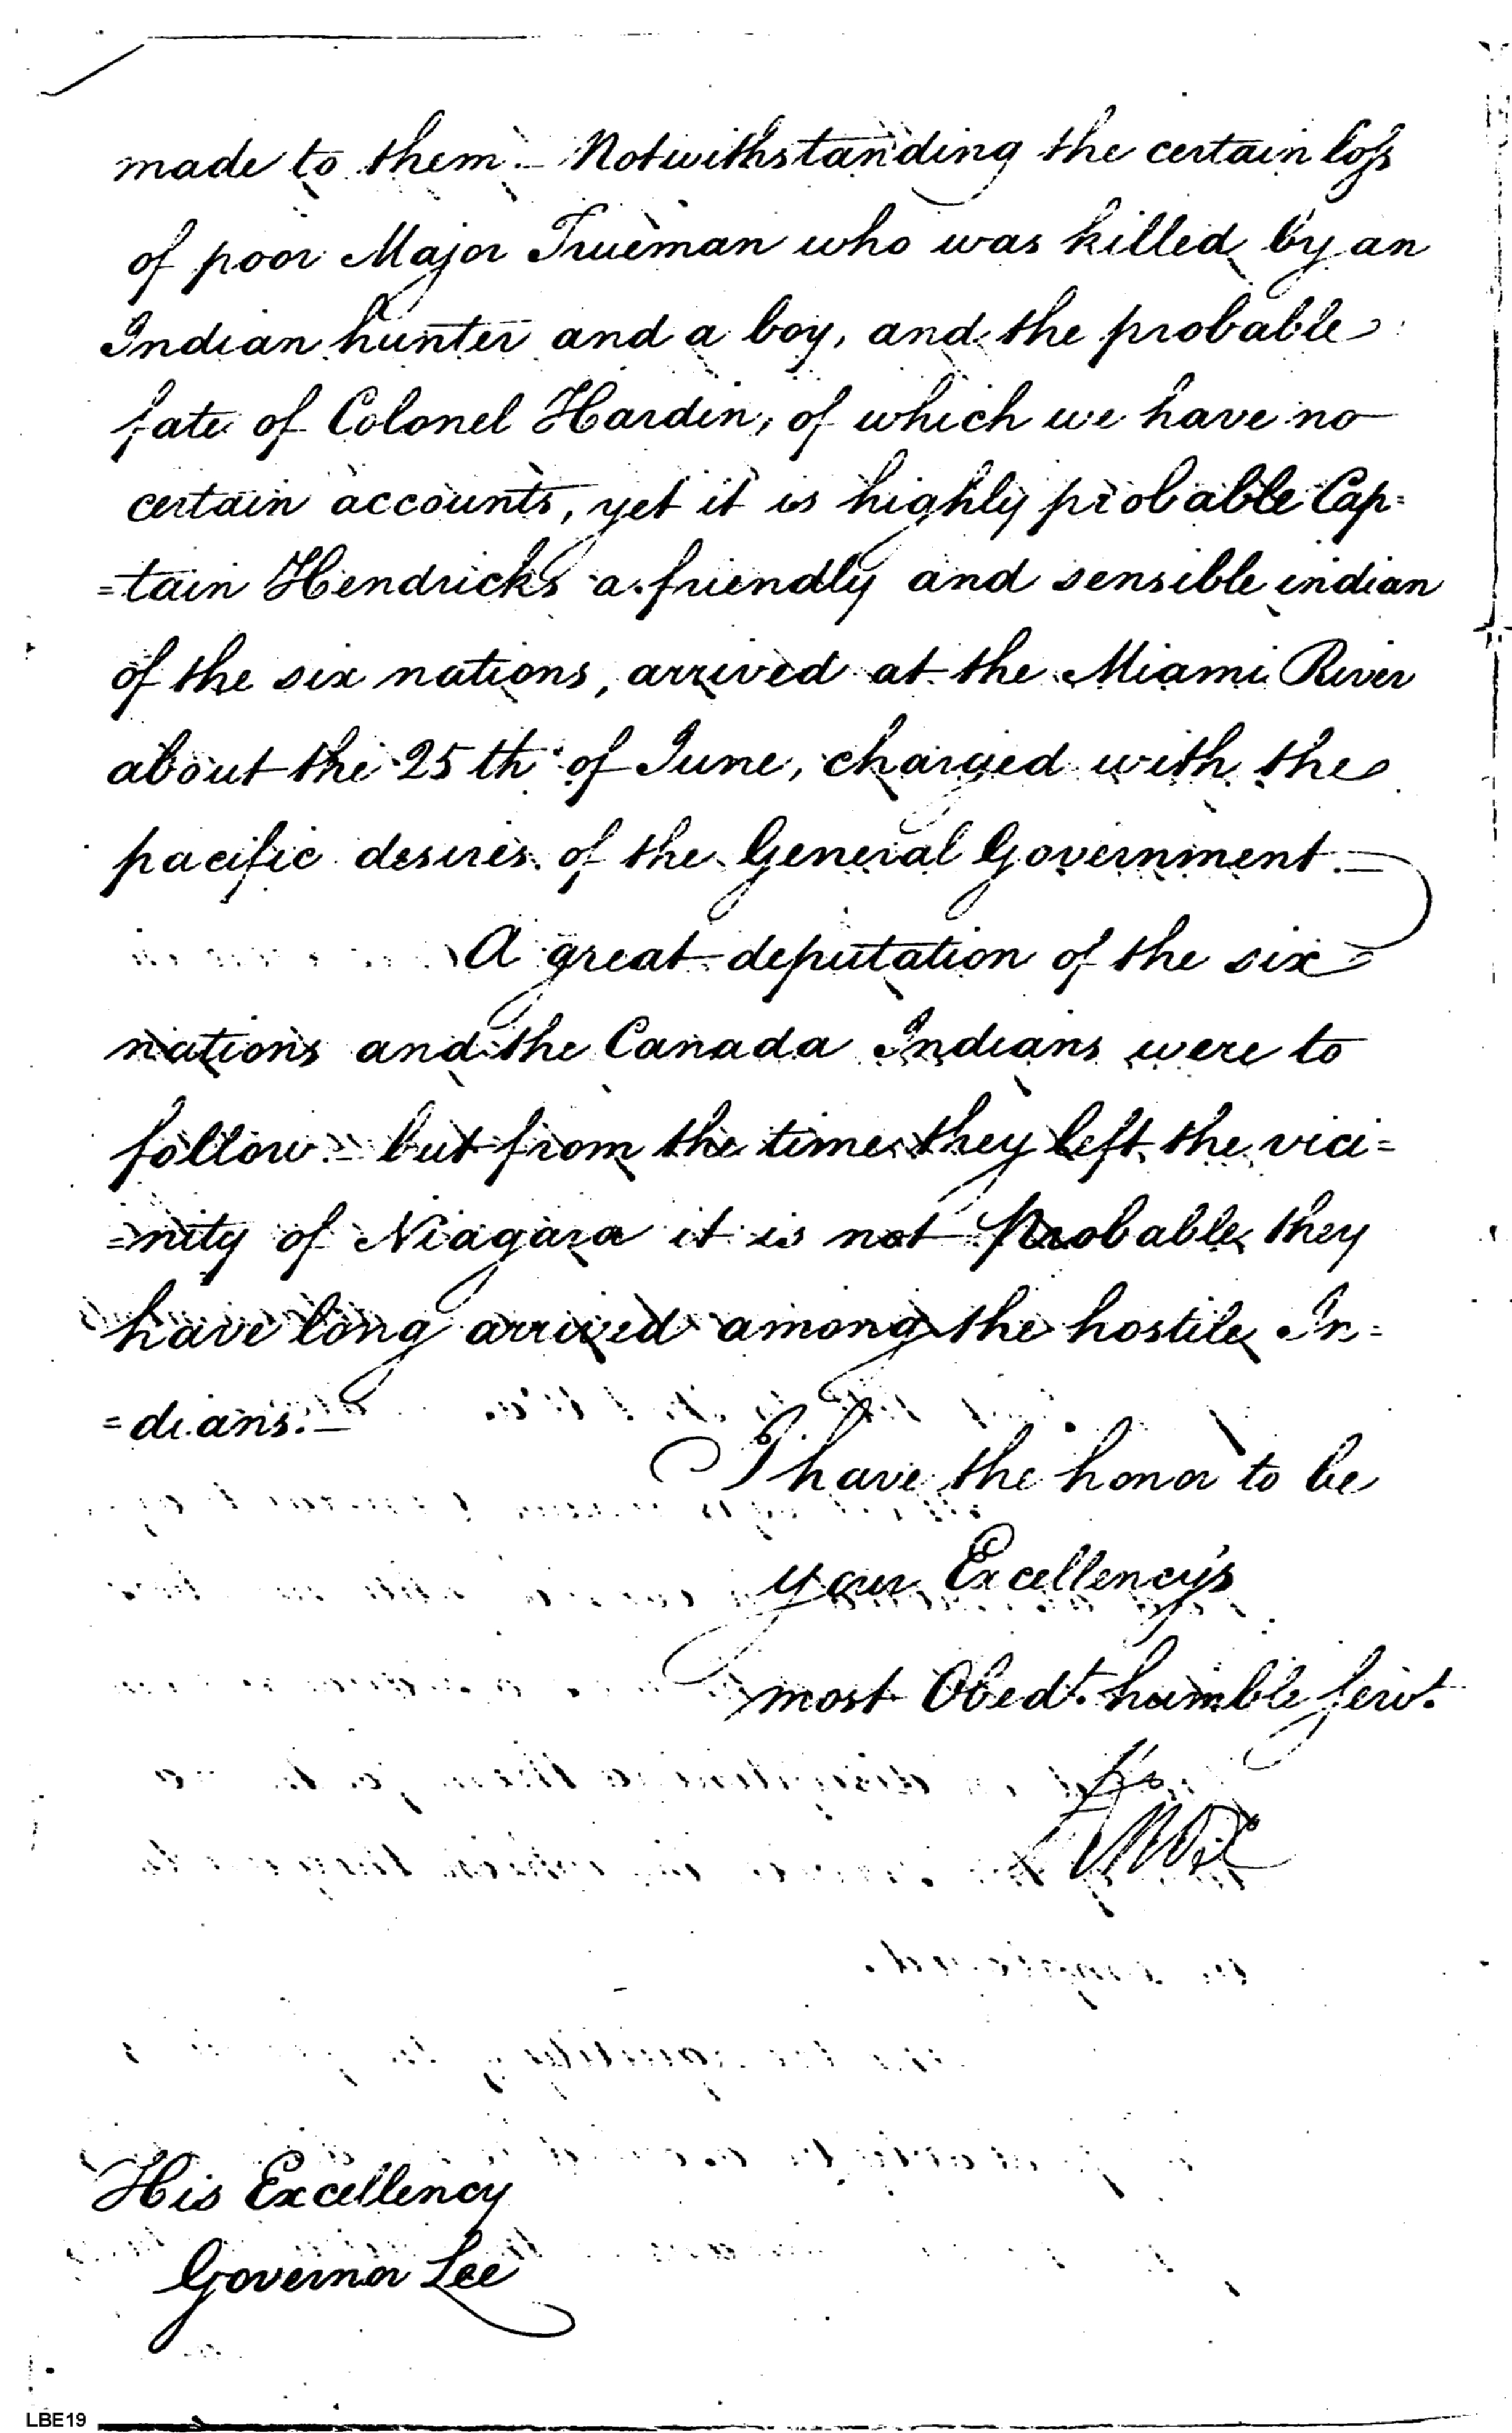 made to them. – Notwithstanding the certain loss
of poor Major Trueman who was killed by an
Indian hunter and a boy, and the probable
fate of Colonel Hardin, of which we have no
certain accounts, yet it is highly probable Cap=
=tain Hendricks a friendly and sensible indian
of the six nations, arrived at the Miami River
about the 25th of June, charged with the
pacific desires of the General Government. –
A great deputation of the six
nations and the Canada Indians were to
follow – but from the time they left the vici=
=nity of Niagara it is not Probable they
have long arrived among the hostile In=
=dians. –
I have the honor to be
your Excellency's
most Obedt. humble servt.
His Excellency
Governor Lee
LBE19